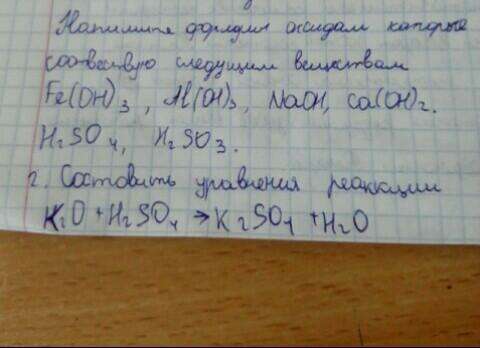 Напишите формулы оксидам которые
соотвествую следущим веществам
Fe(OH)₃, Al(OH)₃, NaOH, Ca(OH)₂.
H₂SO₄, H₂SO₃.
2. Составить уравнения реакции
K₂O + H₂SO₄ → K₂SO₄ + H₂O